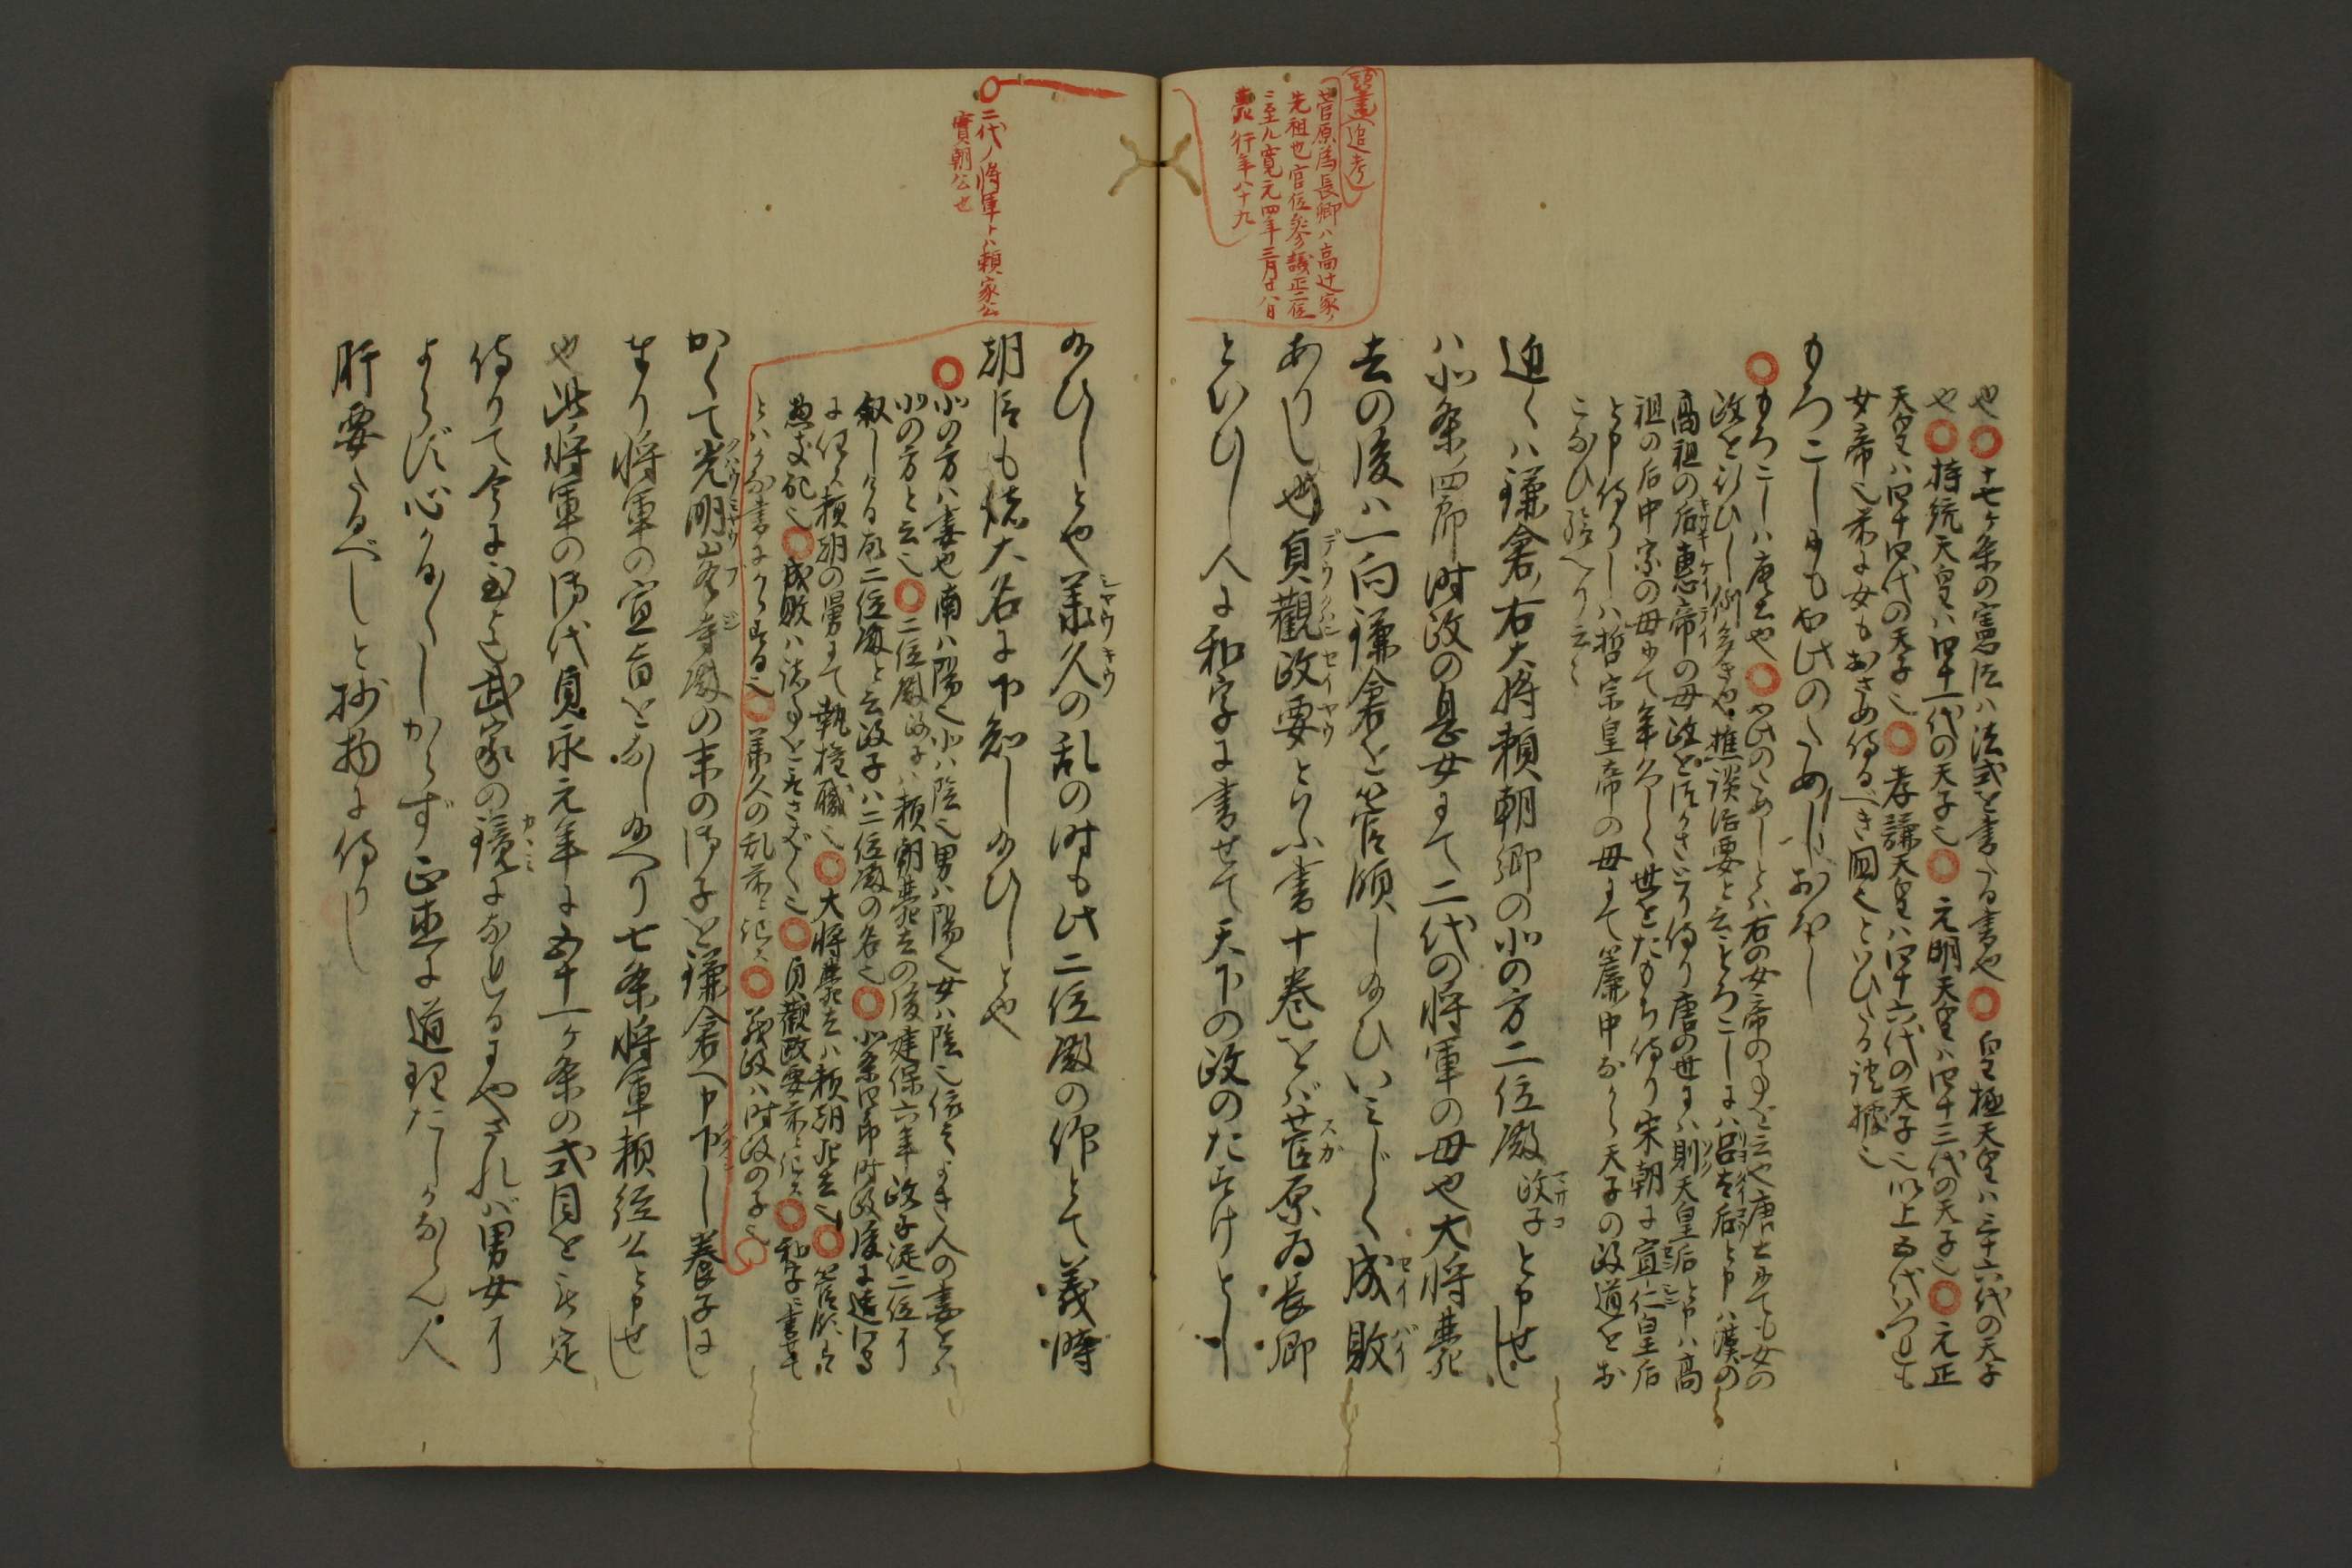 頭書 追考
菅原為長卿ハ高辻家ノ
先祖也官位参議正二位
ニ至ル寛元四年三月廿八日
薨行年八十九
也〇十七ケ条の憲法ハ法式を書たる書や〇皇極天皇ハ三十六代の天子
也〇持統天皇ハ四十一代の天子也〇元明天皇ハ四十三代の天子也〇元正
天皇ハ四十四代の天子也〇孝謙天皇ハ四十六代の天子也以上五代いつれも
女帝也
もろこしにも
〇もろこしハ唐土や〇右の女帝の事を云や唐土にても女の
政を行ひし例多きや樵談治要と云もろこしにハ呂太后と申ハ漢の
高祖の后恵帝の母政を唐の世にハ則天皇后と申ハ高
祖の后中宗の母にて年久しく世をたもち侍り宋朝に宣仁皇后
と申侍りしハ哲宗皇帝の母にて簾中ながら天子の政道をお
こなひ給へり云々
近くハ鎌倉ノ右大将頼朝卿の北の方二位殿政子と申せし
ハ北条四郎時政の息女にて二代の将軍の母也大将薨
去の後ハ一向鎌倉を管領し給ひいみじく成敗
ありし也貞観政要といふ書十巻をば菅原為長卿
といひし人に和字に書せて天下の政のたすけとし
二代ノ将軍トハ頼家公
實朝公也
給ひしとや承久の乱の時も此二位殿の仰とて義時
朝臣も諸大名に下知し給ひしとや
〇北の方ハ妻也南ハ陽也北ハ陰也男ハ陽也女ハ陰也依てよき人の妻をハ
北の方と云也〇二位殿政子ハ頼朝薨去の後建保六年政子従二位に
叙しける故二位殿と云政子ハ二位殿の名也〇北条四郎時政後に遠江守
に任ス頼朝の舅にて執権職也〇大将薨去ハ頼朝死去也〇管領ハ
〇成敗ハ諸事をさばく也〇貞観政要前ニ注ス〇和字ニ書せて
とハかな書にかゝする也〇承久の乱前ニ注ス〇義時ハ時政の子也
かくて光明峯寺殿の末の御子を鎌倉へ申下し養子に
なり将軍の宣旨をなし給へり七条将軍頼経公と申せし
や此将軍の御代貞永元年に五十一ケ条の式目を定
侍りて今に至まで武家の鏡になれるにやされバ男女に
よらず心うるハしからず正直に道理たしかならん人
肝要たるべしと抄物に侍りし